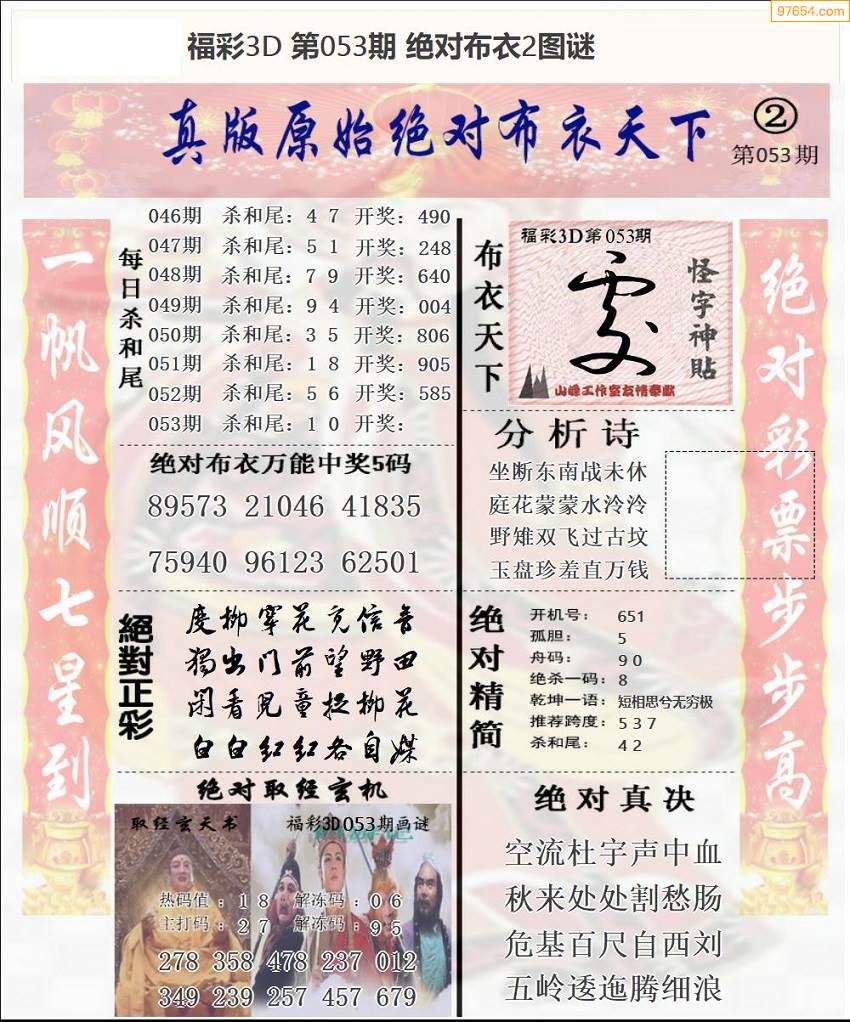 97654.com
福彩3D 第053期 绝对布衣2图谜
真版原始绝对布衣天下
②
第053期
一帆风顺七星到
每日杀和尾
046期 杀和尾：4 7 开奖：490
047期 杀和尾：5 1 开奖：248
048期 杀和尾：7 9 开奖：640
049期 杀和尾：9 4 开奖：004
050期 杀和尾：3 5 开奖：806
051期 杀和尾：1 8 开奖：905
052期 杀和尾：5 6 开奖：585
053期 杀和尾：1 0 开奖：
绝对布衣万能中奖5码
89573 21046 41835
75940 96123 62501
絕對正彩
度柳穿花充信音
獨出门前望野田
闲看兒童捉柳花
白白红红各自媒
绝对取经玄机
取经玄天书
福彩3D053期画谜
热码值：1 8 解冻码：0 6
主打码：2 7 解冻码：9 5
278 358 478 237 012
349 239 257 457 679
布衣天下
福彩3D第053期
怪字神貼
山峰工作室友情奉献
分析诗
坐断东南战未休
庭花蒙蒙水泠泠
野雉双飞过古坟
玉盘珍羞直万钱
绝对精简
开机号：651
孤胆：5
舟码：9 0
绝杀一码：8
乾坤一语：短相思兮无穷极
推荐跨度：5 3 7
杀和尾：4 2
绝对真决
空流杜宇声中血
秋来处处割愁肠
危基百尺自西刘
五岭逶迤腾细浪
绝对彩票步步高